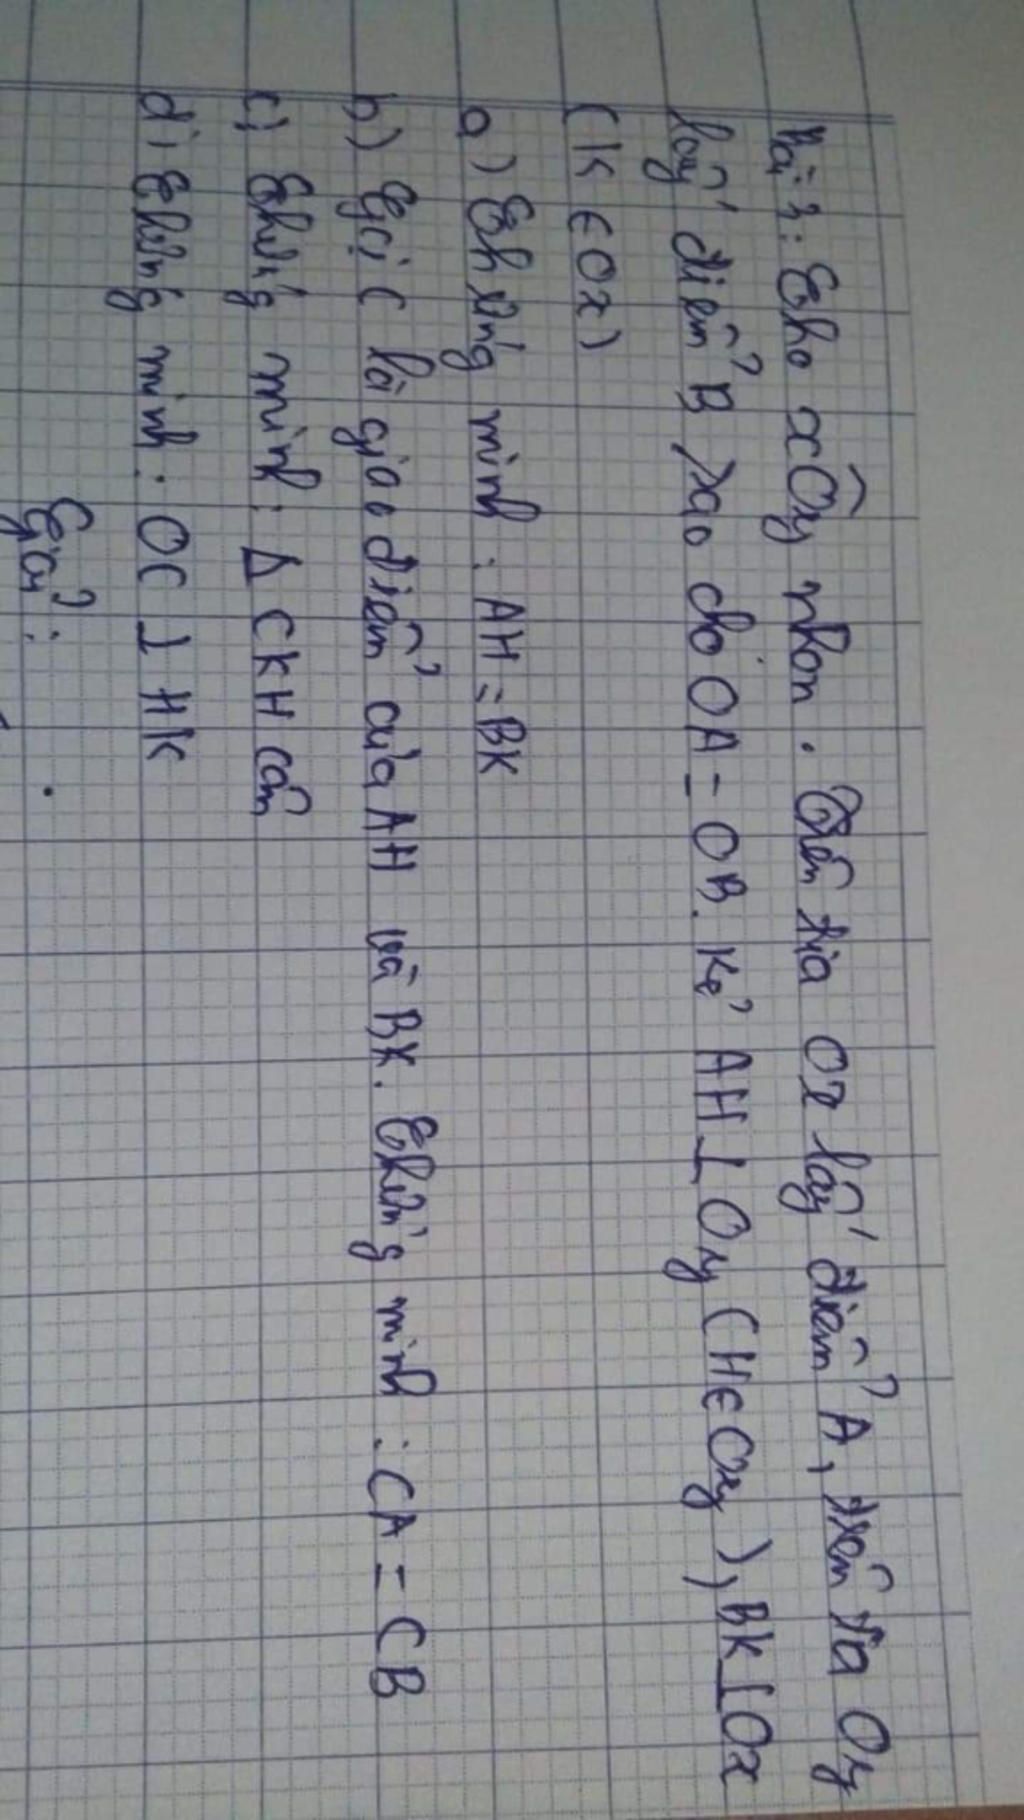 Bài 3: Cho xÔy nhọn. Trên tia Ox lấy điểm A, trên tia Oy
lấy điểm B sao cho OA = OB. Kẻ AH ⊥ Oy (H ∈ Oy), BK ⊥ Ox
(K ∈ Ox)
a) Chứng minh: AH = BK
b) Gọi C là giao điểm của AH và BK. Chứng minh: CA = CB
c) Chứng minh: Δ CKH cân
d) Chứng minh: OC ⊥ HK
Giải: